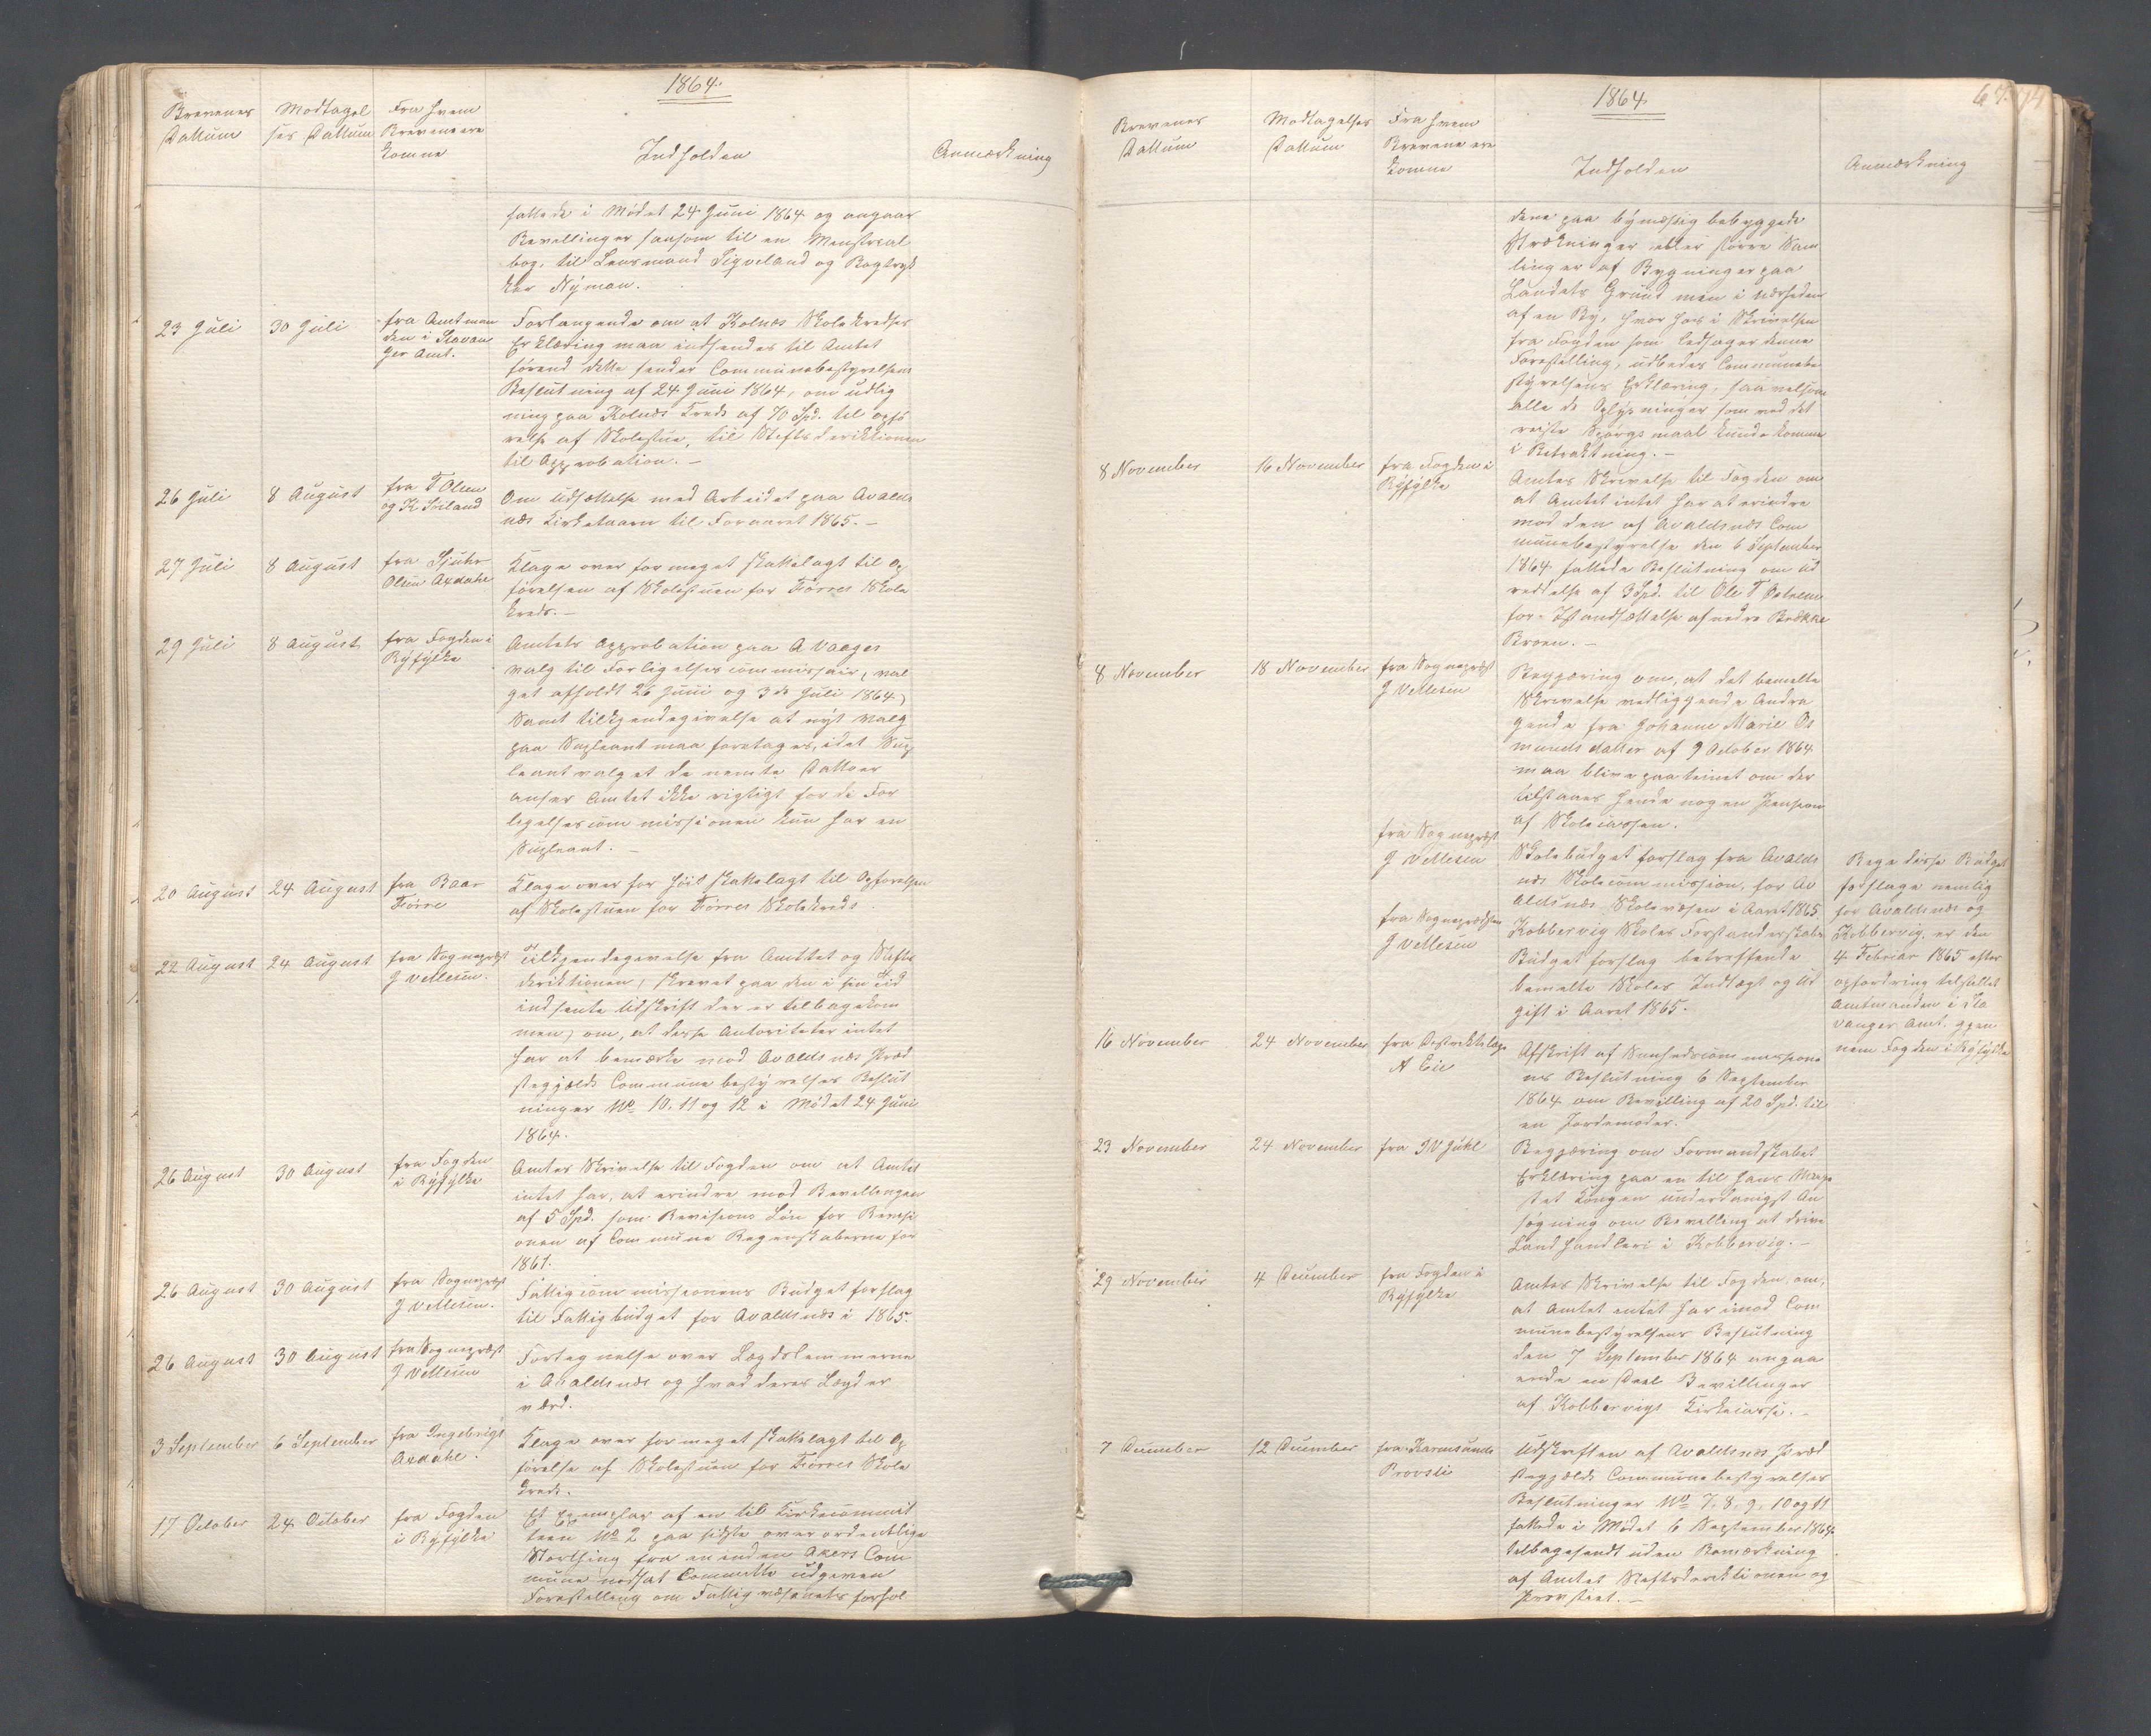 1864.
Brevenes Dattum
Modtagelses Dattum
Fra hvem Brevene ere komne
Indholden
Anmærkning
fattede i Mødet 24 Juni 1864 og angaar
Bevillinger saasom til en
bog, til Lensmand Sigveland og Bogtryk
ker Nyman.
23 Juli
30 Juli
fra Amtman
den i Stavan
ger Amt.
Forlangende om at Kolnes Skolekredses
Erklæring maa indsendes til Amtet
førend dette sender Communebestyrelsens
Beslutning af 24 Juni 1864, om udlig
ning paa Kolnes Kreds af 70 Spd. til opfø
relse af Skolestue, til Stiftsdirektionen
til Approbation. –
26 Juli
8 August
fra T Olsen
og K
Om Udsættelse med Arbeidet paa Avalds
næs Kirketaarn til Foraaret 1865. –
27 Juli
8 August
fra Sjuhr
Olsen Axdahl
Klage over for meget skattelagt til Op
førelsen af Skolestuen for Førres Skole
kreds. –
29 Juli
8 August
fra Fogden i
Ryfylke
Amtets Approbation paa A Vaages
valg til Forligelsescommissair, (val
get afholdt 26 Juni og 3de Juli 1864)
Samt tilkjendegivelse at nyt valg
paa Supleant maa foretages, idet Sup
leantvalget de nemte Dattoer
anser Amtet ikke rigtigt for de For
ligelsescommissionen kun har en
Supleant. –
20 August
24 August
fra Baar
Førre
Klage over for høit skattelagt til Opførelsen
af Skolestuen for Førres Skolekreds.
22 August
24 August
fra Sognepræst
J Vetlesen.
Tilkjendegivelse fra Amttet og Stifts
direktionen, (skrevet paa den i sin Tid
indsente Udskrift der er tilbagekom
men) om, at disse Autoriteter intet
har at bemærke mod Avaldsnæs Præ
stegjelds Communebestyrelses Beslut
ninger No 10. 11 og 12 i Mødet 24 Juni
1864.
26 August
30 August
fra Fogden
i Ryfylke
Amtes Skrivelse til Fogden om at Amtet
intet har, at erindre mod Bevillingen
af 5 Spd. som Revisions Løn for Revisi
onen af Commune Regenskaberne for
1861.
26 August
30 August
fra Sognepræst
J Vetlesen.
Fattigcommissionens Budgetforslag
til Fattigbudget for Avaldsnæs i 1865.
26 August
30 August
fra Sognepræst
J Vetlesen
Fortegnelse over Lægdslemmerne
i Avaldsnæs og hvad deres Lægd er
værd.
3 September
6 September
fra Ingebrigt
Axdahl.
Klage over for meget skattelagt til Op
førelse af Skolestuen for Førres Skole
kreds.
17 October
24 October
fra Fogden
i Ryfylke
Et Exemplar af en til Kirkecommit
teen No 2 paa sidste overordentlige
Storthing fra en inden Akers Com
mune nedsat Committe udgiven
Forestilling om Fattigvæsenets forhol
1864
64.
Brevenes Dattum
Modtagelses Dattum
Fra hvem Brevene ere komne
Indholden
Anmærkning
dene paa bymæssig bebyggede
Strækninger eller større Sam
linger af Bygninger paa
Landets Grund men i nærheden
af en By, hvor hos i Skrivelsen
fra Fogden som ledsager denne
Forestilling, udbedes Communebe
styrelsens Erklæring, saavelsom
alle de Oplysninger som ved det
reiste Spørgsmaal kunde komme
i Betraktning. –
8 November
16 November
fra Fogden i
Ryfylke
Amtes Skrivelse til Fogden om
at Amtet intet har at erindre
mod den af Avaldsnæs Com
munebestyrelse den 6 September
1864 fattede Beslutning om Ud
reddelse af 3 Spd. til Ole T Østrem
for Istandsættelse af nedre Bække
Broen. –
8 November
18 November
fra Sognepræst
J Vetlesen
Begjæring om, at det bemelte
Skrivelse vedliggende Andra
gende fra Johanne Marie
mundsdatter af 9 October 1864
maa blive paateinet om der
tilstaaes hende nogen Pension
af Skolecassen.
fra Sognepræst
J Vetlesen
Skolebudgetforslag fra Avalds
næs Skolecommission, for Av
aldsnæs Skolevæsen i Aaret 1865
fra Sognepræsten
J Vetlesen
Kobbervig Skoles Forstanderskabs
Budgetforslag betreffende
bemelte Skoles Indtægt og Ud
gift i Aaret 1865.
Bege disse Budget
forslage nemlig
for Avaldsnæs og
Kobbervig, er den
4 Februar 1865 efter
opfordring tilstillet
Amtmanden i Sta
vanger Amt. gjen
nem Fogden i Ryfylke
16 November
24 November
fra Distriktslæge
A Eie
Afskrift af Sunhedscommissione
nes Beslutning 6 September
1864 om Bevilling af 20 Spd. til
en Jordemoder.
23 November
24 November
fra I W Juhl
Begjæring om Formandskabet
Erklæring paa en til Hans Maje
stet Kongen underdanigst An
søgning om Bevilling at drive
Landhandleri i Kobbervig. –
29 November
4 December
fra Fogden i
Ryfylke
Amtes Skrivelse til Fogden, om,
at Amtet intet har imod Com
munebestyrelsens Beslutning
den 7 September 1864 angaa
ende en Deel Bevillinger
af Kobbervigs Kirkecasse. –
7 December
12 December
fra Karmsunds
Provsti
Udskriften af Avaldsnæs Præ
stegjelds Communebestyrelses
Beslutninger No 7. 8. 9. 10 og 11
fattede i Mødet 6 September 1864.
tilbagesendt uden Bemærkning
af Amtet Stiftsdirektionen og
Provstiet. –